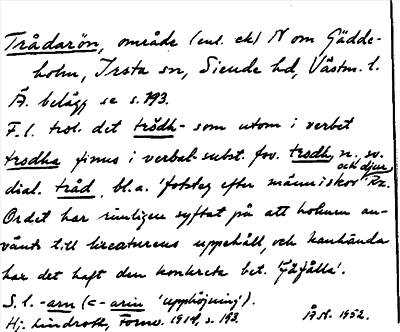 Trådarön, område (enl. ek) N om Gädde-
holm, Irsta sn, Siende hd, Västm. l.
Ä. belägg se s. 193.
F. l. trol. det trödh- som utom i verbet
trodha finns i verbal-subst. fsv. trodh, n., sv.
dial. tråd, bl.a. 'fotsteg efter människor och djur' Rz.
Ordet har rimligen syftat på att holmen an-
vänts till kreaturens uppehåll, och kanhända
har det haft den konkreta bet. 'fäfålla'.
S. l. -arn (<-arin 'upphöjning').
Hj. Lindroth, Fornv. 1918, s. 193. Å.N. 1952.